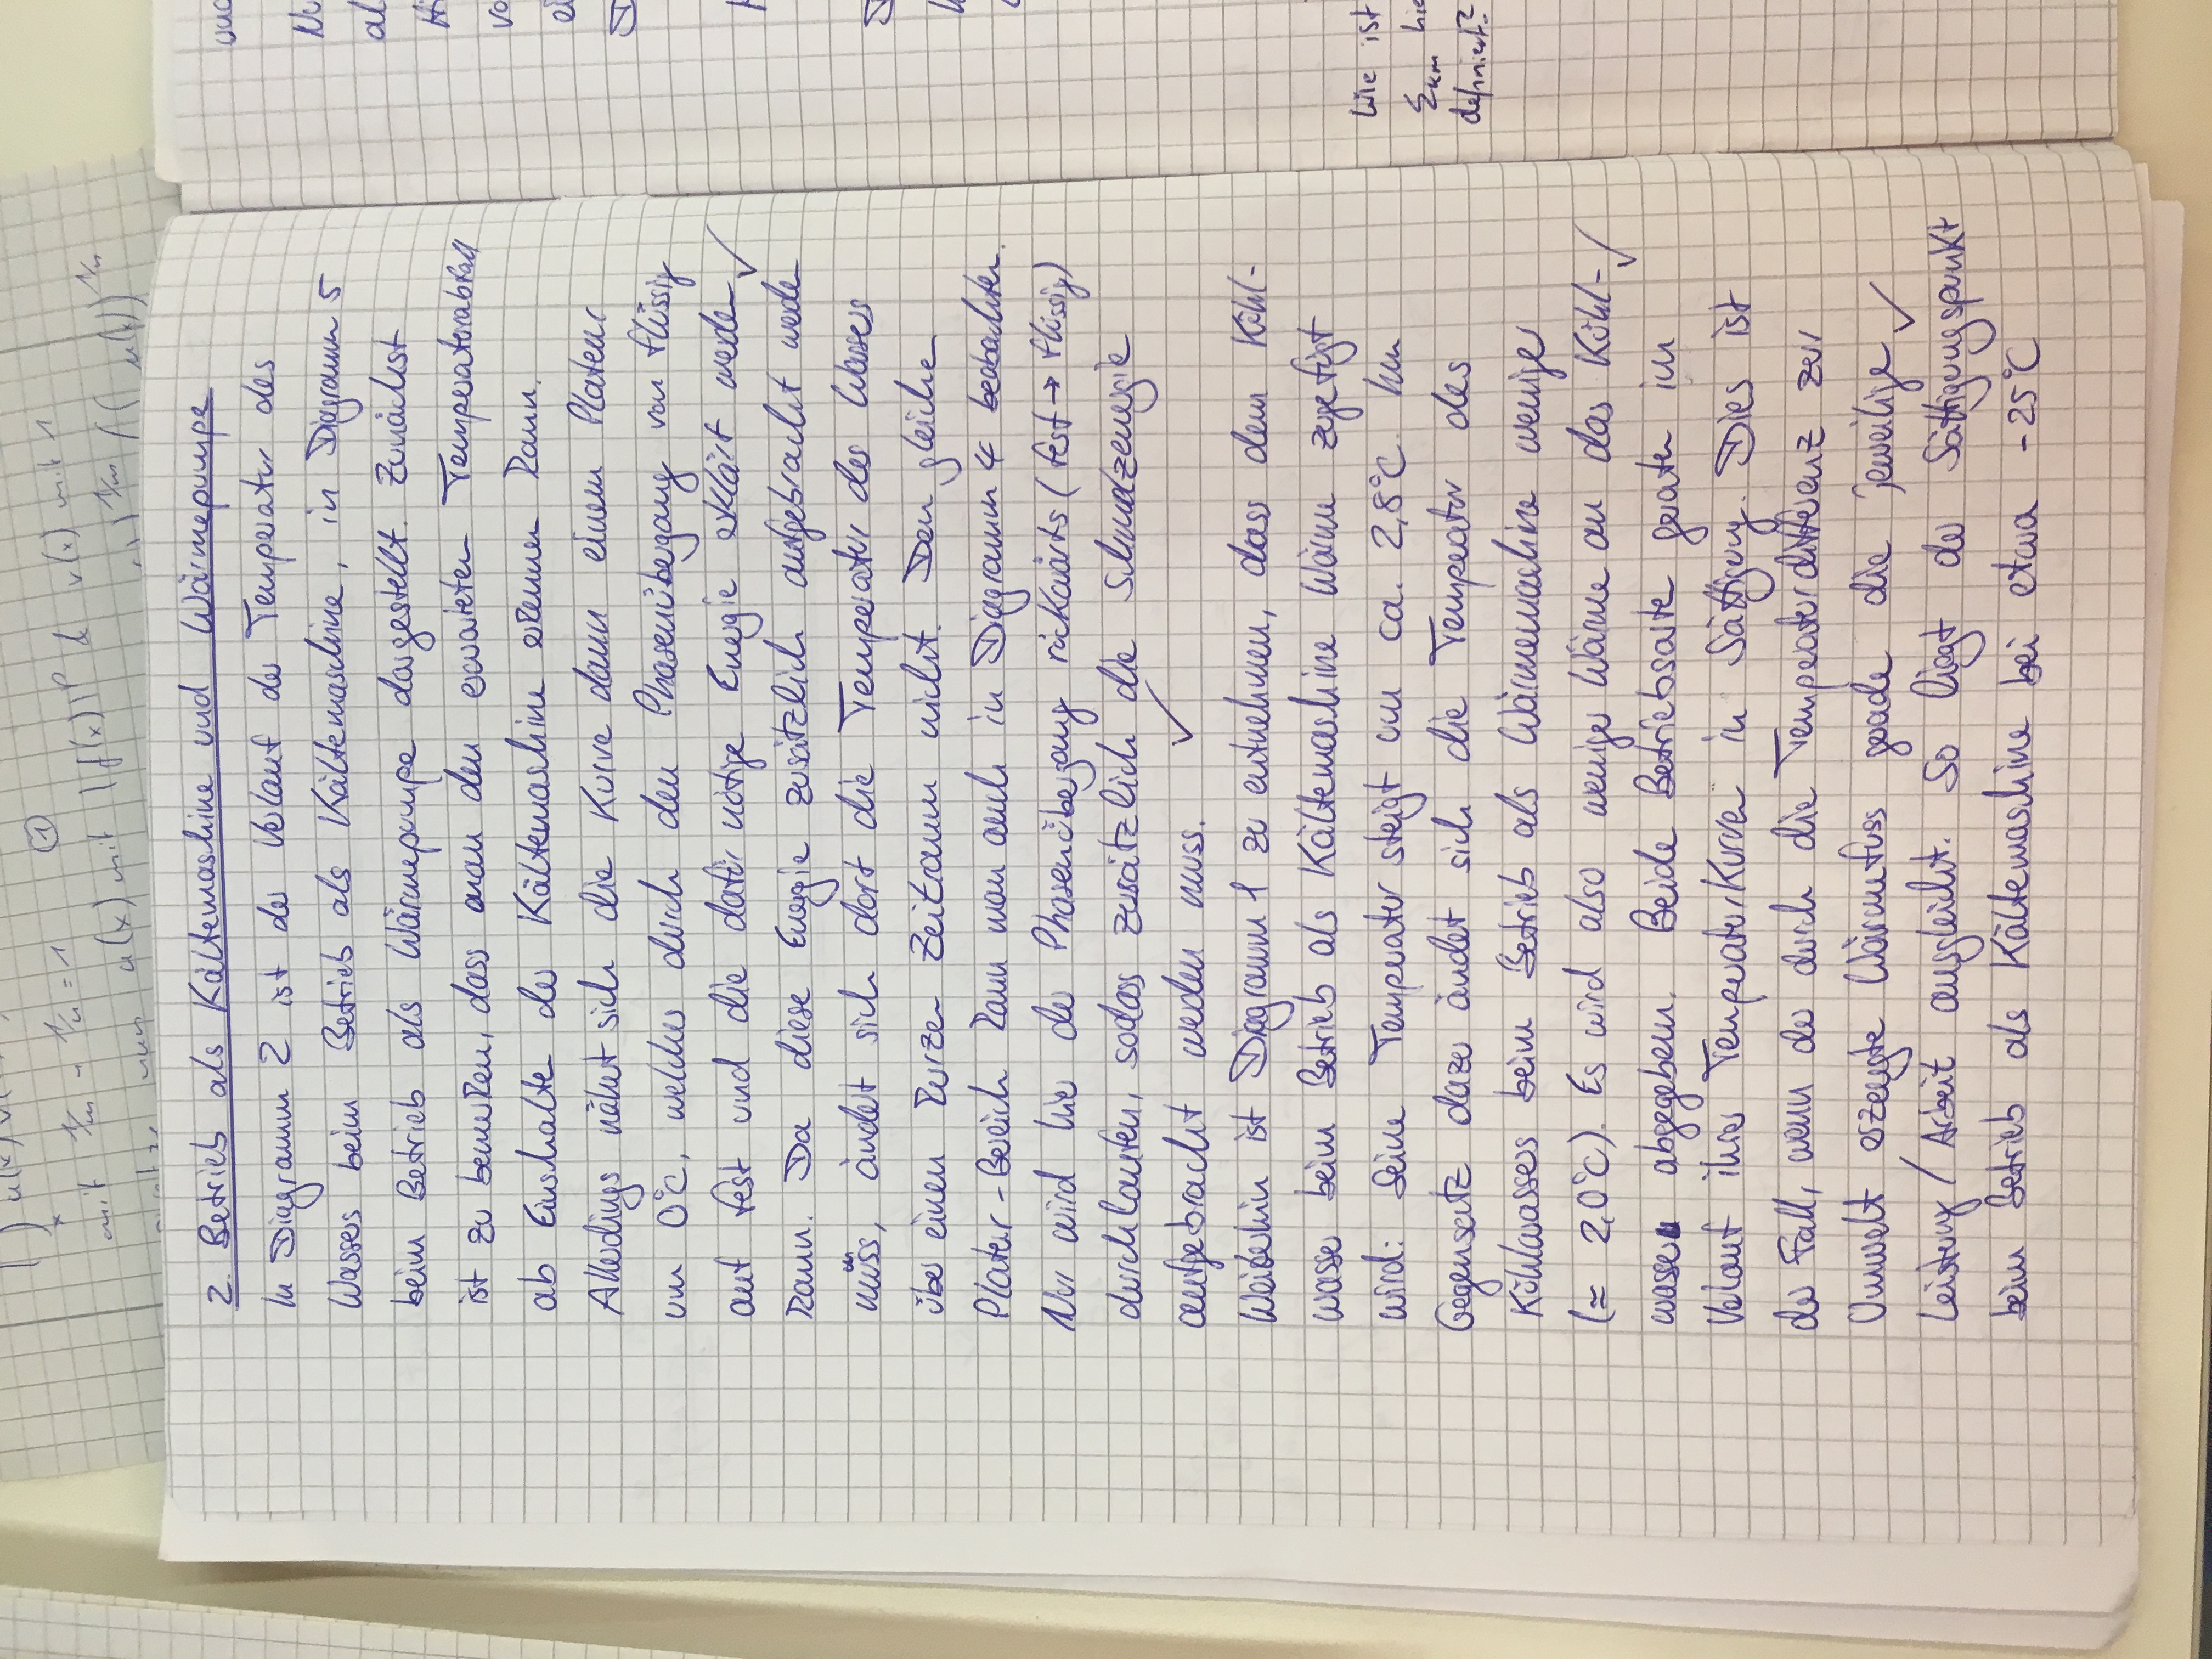 mit 1/m + 1/n = 1 ①
nun u(x) mit |f(x)|^p & v(x) mit 1
2. Betrieb als Kältemaschine und Wärmepumpe
In Diagramm 2 ist der Verlauf der Temperatur des
Wassers beim Betrieb als Kältemaschine, in Diagramm 5
beim Betrieb als Wärmepumpe dargestellt. Zunächst
ist zu bemerken, dass man den erwarteten Temperaturabfall
ab Einschalten der Kältemaschine erkennen kann.
Allerdings nähert sich die Kurve dann einem Plateur
um 0°C, welches durch den Phasenübergang von flüssig
auf fest und die dafür nötige Energie erklärt werden ✓
kann. Da diese Energie zusätzlich aufgebracht werden
muss, ändert sich dort die Temperatur des Wassers
über einen kurzen Zeitraum nicht. Den gleichen
Platur-Bereich kann man auch in Diagramm 4 beobachten.
Nur wird hier der Phasenübergang rückwärts (fest → flüssig)
durchlaufen, sodass zusätzlich die Schmelzenergie
aufgebracht werden muss. ✓
Weiterhin ist Diagramm 1 zu entnehmen, dass dem Kühl-
wasser beim Betrieb als Kältemaschine Wärme zugefügt
wird: Seine Temperatur steigt um ca. 2,8°C. Im
Gegensatz dazu ändert sich die Temperatur des
Kühlwassers beim Betrieb als Wärmemaschine weniger
(≈ 2,0°C). Es wird also weniger Wärme an das Kühl- ✓
wasser abgegeben. Beide Betriebsarten geraten im
Verlauf ihrer Temperaturkurven in Sättigung. Dies ist
der Fall, wenn der durch die Temperaturdifferenz zur
Umwelt erzeugte Wärmefuss gerade die jeweilige ✓
Leistung / Arbeit ausgleicht. So liegt der Sättigungspunkt
beim Betrieb als Kältemaschine bei etwa -25°C
und
al
ei
Wie ist
ε_KM hie
definiert?